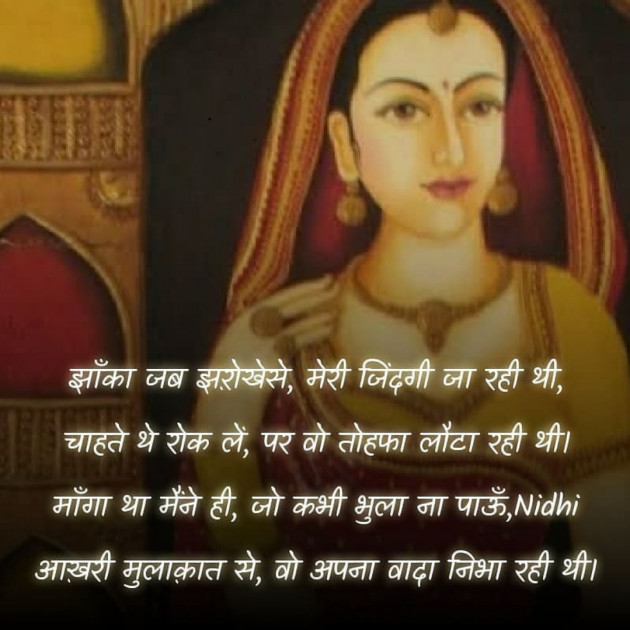 झाँका जब झऱोखेसे, मेरी जिंदगी जा रही थी,
चाहते थे रोक लें, पर वो तोहफा लौटा रही थी।
माँगा था मैंने ही, जो कभी भुला ना पाऊँ,Nidhi
आख़री मुलाक़ात से, वो अपना वादा निभा रही थी।